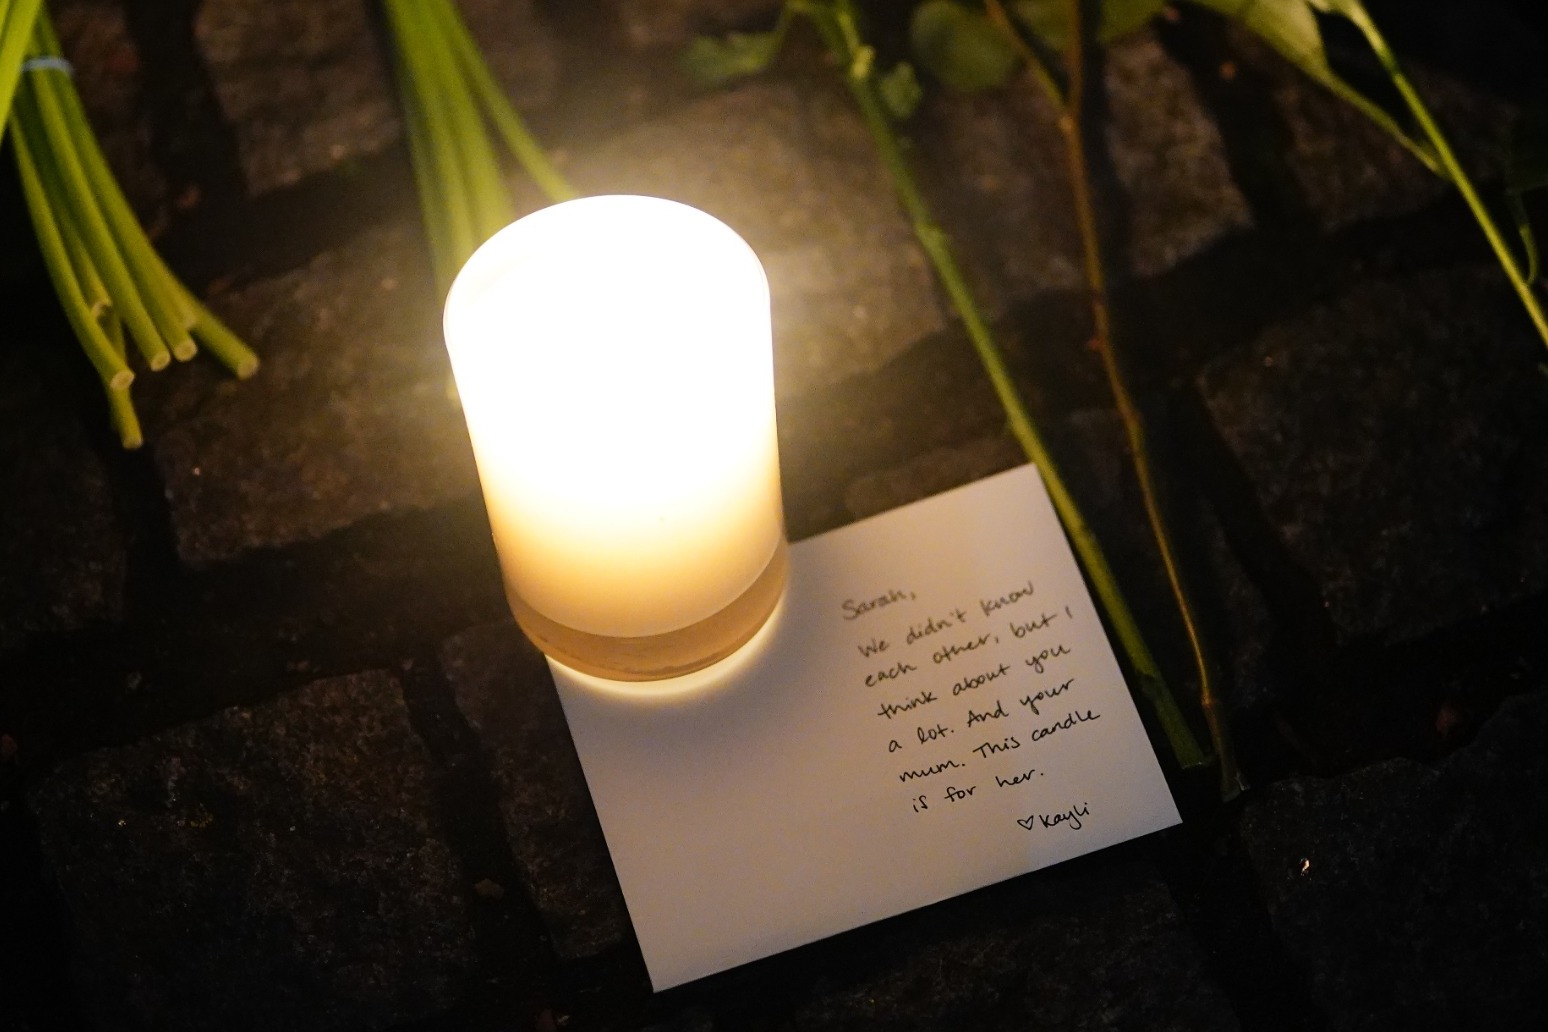 Sarah,
We didn't know
each other, but I
think about you
a lot. And your
mum. This candle
is for her.
♡ Kayli